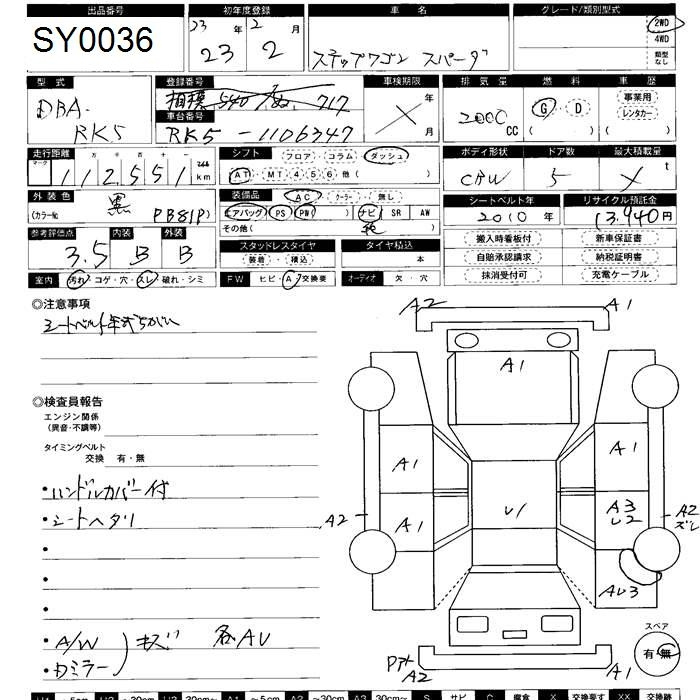 出品番号 初年度登録 車名 グレード/類別型式
SY0036 23年 2月 2WD
23 2 ステップワゴン スパーダ 4WD
類型なし
型式 登録番号 車検期限 排気量 燃料 車歴
DBA- 相模 540 ぬ 717 年 事業用
RK5 車台番号 2000 CC G D レンタカー
RK5-1106347 月 ( ) ( )
走行距離 シフト フロア コラム ダッシュ ボディ形状 ドア数 最大積載量
マーク 十 万 千 百 十 一
112551 km AT MT 4 5 6 他( ) 5 t
外装色 装備品 AC クーラー 無し シートベルト年 リサイクル預託金
(カラー№ 黒 PB81P) エアバッグ PS PW ナビ SR AW 2010年 13,940円
その他( )
参考評価点 内装 外装 スタッドレスタイヤ タイヤ積込 搬入時看板付 新車保証書
3.5 B B 装着・積込 本 自賠承認請求 納税証明書
室内 汚れ・コゲ・穴・スレ・破れ・シミ FW ヒビ・A・交換要 オーディオ 欠・穴 抹消受付可 充電ケーブル
◎注意事項
シートベルト年式ちがい
◎検査員報告
エンジン関係
(異音・不調等)
タイミングベルト
交換 有・無
・ハンドルカバー付
・シートヘタリ
・
・
・
・A/W
・ドミラー
キズ 各AU
A2 A1
A1
A1 A1
A2 A1 U1 A3 U2 A2 ズレ
AU3
スペア
有・無
A2 A1